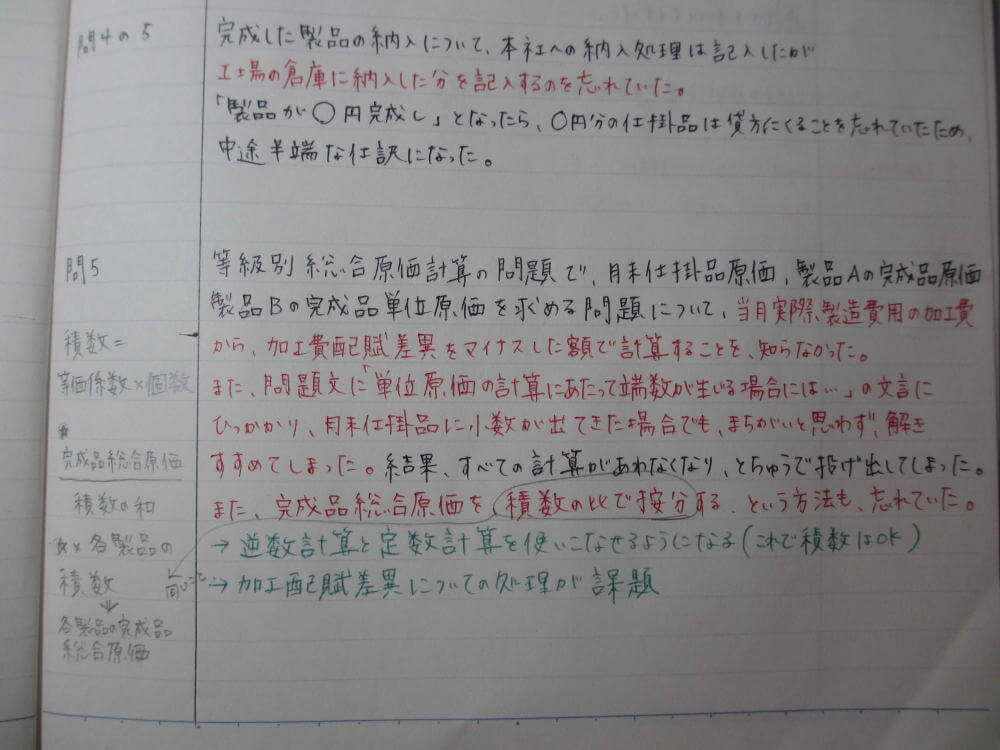 問4の5
完成した製品の納入について、本社への納入処理は記入したが
工場の倉庫に納入した分を記入するのを忘れていた。
「製品が〇円完成し」となったら、〇円分の仕掛品は貸方にくることを忘れていたため、
中途半端な仕訳になった。
問5
等級別総合原価計算の問題で、月末仕掛品原価、製品Aの完成品原価
製品Bの完成品単位原価を求める問題について、当月実際製造費用の加工費
から、加工費配賦差異をマイナスした額で計算することを、知らなかった。
また、問題文に「単位原価の計算にあたって端数が生じる場合には…」の文言に
ひっかかり、月末仕掛品に小数が出てきた場合でも、まちがいと思わず、解き
すすめてしまった。結果、すべての計算があわなくなり、とちゅうで投げ出してしまった。
また、完成品総合原価を積数の比で按分する、という方法も、忘れていた。
→逆数計算と定数計算を使いこなせるようになる(これで積数はOK)
→加工配賦差異についての処理が課題
積数=
等価係数×個数
☆
完成品総合原価
積数の和
☆×各製品の
積数
⇓
各製品の完成品
総合原価
同じこと